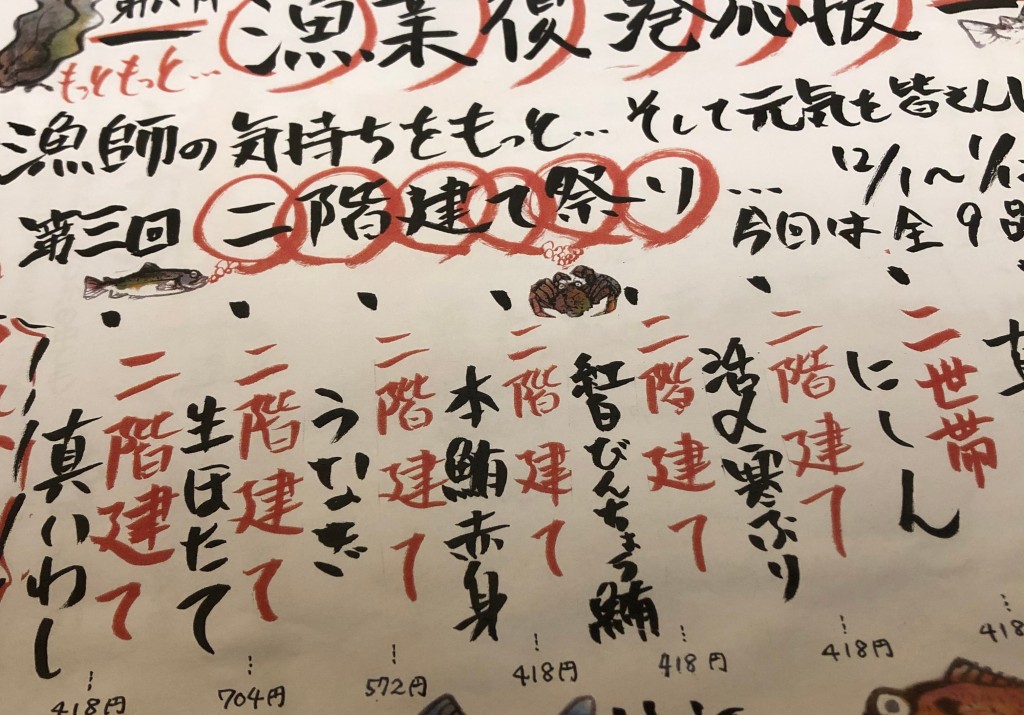 漁業復
応援
もっともっと…
漁師の気持ちをもっと… そして元気を皆さん
第三回 二階建て祭り…
12/1～1/
今回は全9品
二世帯
にしん
418
二階建て
活〆寒ぶり
418円
二階建て
紅白びんちょう鮪
418円
二階建て
本鮪赤身
418円
二階建て
うなぎ
572円
二階建て
生ほたて
704円
二階建て
真いわし
418円